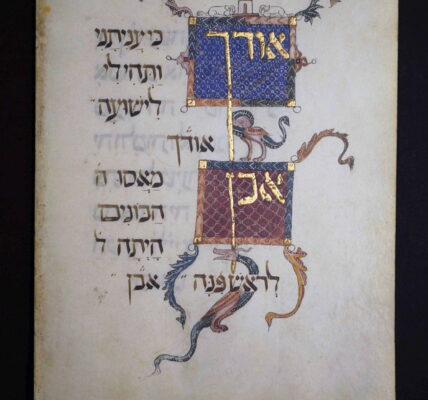 אודך כי עניתני
ותהי לי
לישועה
אודך
אבן מאסו ה
הבונים
היתה ל
לראש פנה אבן